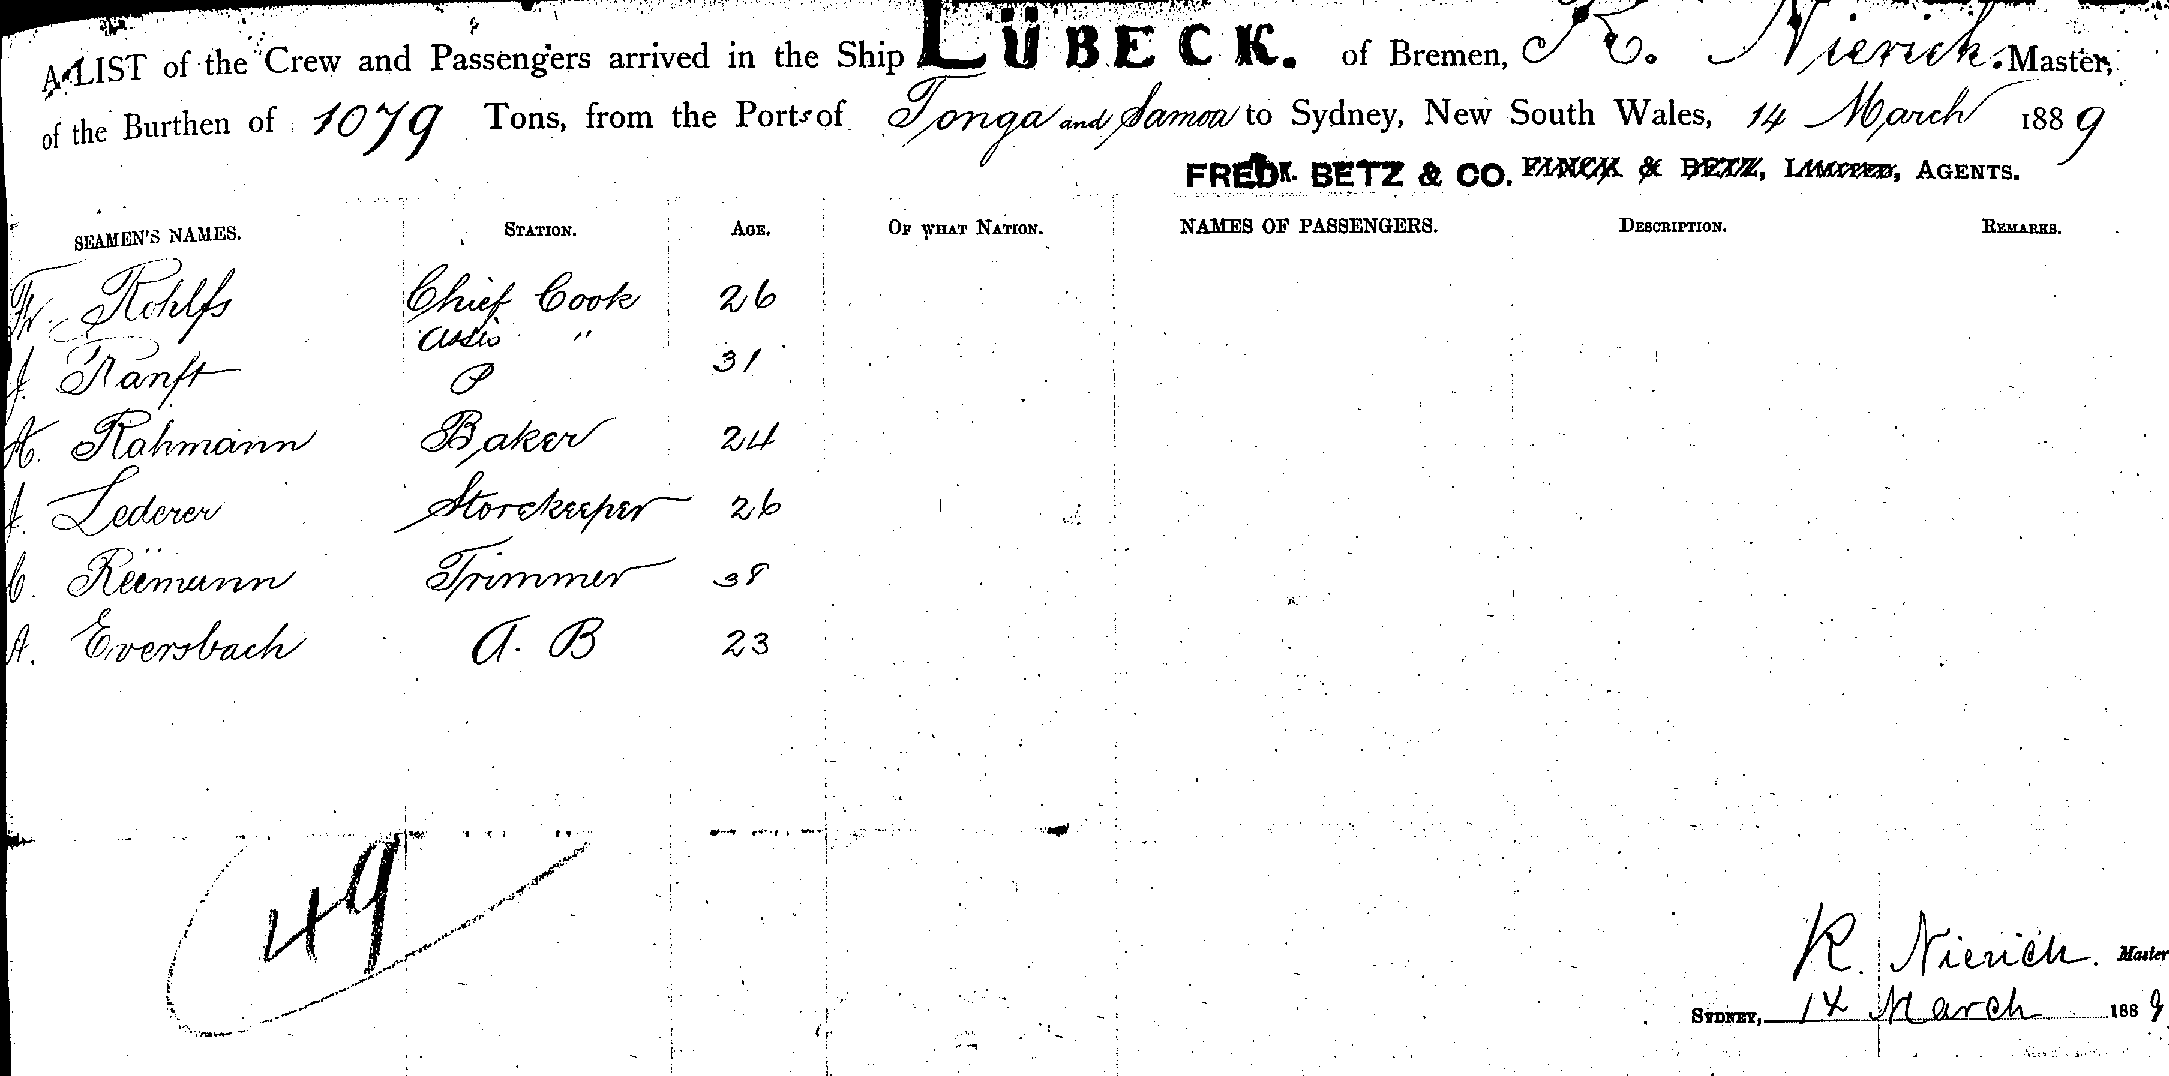 A LIST of the Crew and Passengers arrived in the Ship LÜBECK. of Bremen, R. Nierich. Master,
of the Burthen of 1079 Tons, from the Ports of Tonga and Samoa to Sydney, New South Wales, 14 March 1889
FREDK. BETZ & CO. FINCK & BETZ, LIMITED, AGENTS.
SEAMEN'S NAMES. STATION. AGE. OF WHAT NATION. NAMES OF PASSENGERS. DESCRIPTION. REMARKS.
Fr. Rohlfs Chief Cook 26
J. Ranft Assis " P 31
A. Rahmann Baker 24
J. Lederer Storekeeper 26
C. Reimann Trimmer 38
A. Eversbach A. B 23
49
R. Nierich. Master
SYDNEY, 14 March 1889